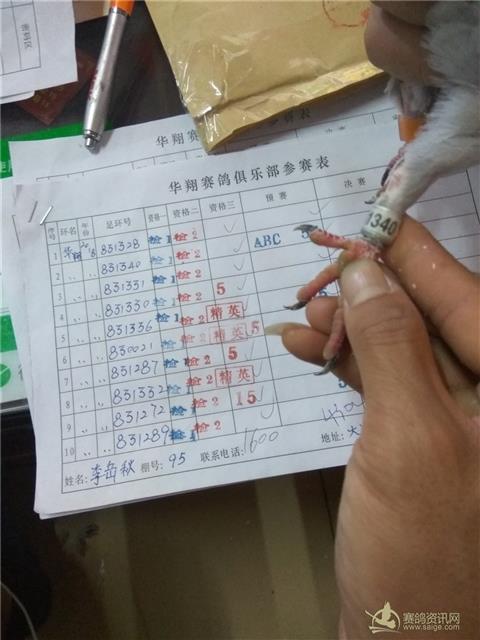 密码区
华翔赛
表
华翔赛鸽俱乐部参赛表
序号 环名 年份 足环号 资格一 资格二 资格三 预赛 决赛
1 华翔 831328 检1 检2 ABC 5
2 〃 〃 831340 检1 检2
3 〃 〃 831331 检1 检2
4 〃 〃 831330 检1 检2 5
5 〃 〃 831336 检1 检2 精英
6 〃 〃 830021 检1 检2 精英 5
7 〃 〃 831287 检1 检2 5
8 〃 〃 831332 检2 精英
9 〃 〃 831272 检1 检2 15
10 〃 〃 831289 检1
姓名: 李岳秋 棚号: 95 联系电话: 1600 地址:
1340
赛鸽资讯网
www.saige.com